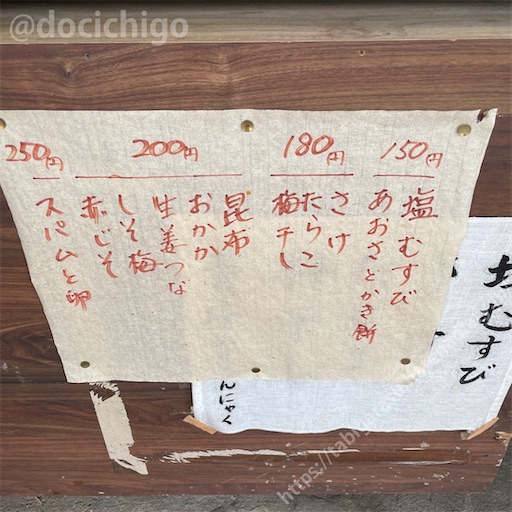 @docichigo
150円
塩むすび
あおさとかき餅
180円
さけ
たらこ
梅干し
200円
昆布
おかか
生姜つな
しそ梅
赤じそ
250円
スパムと卵
むすび
んにゃく